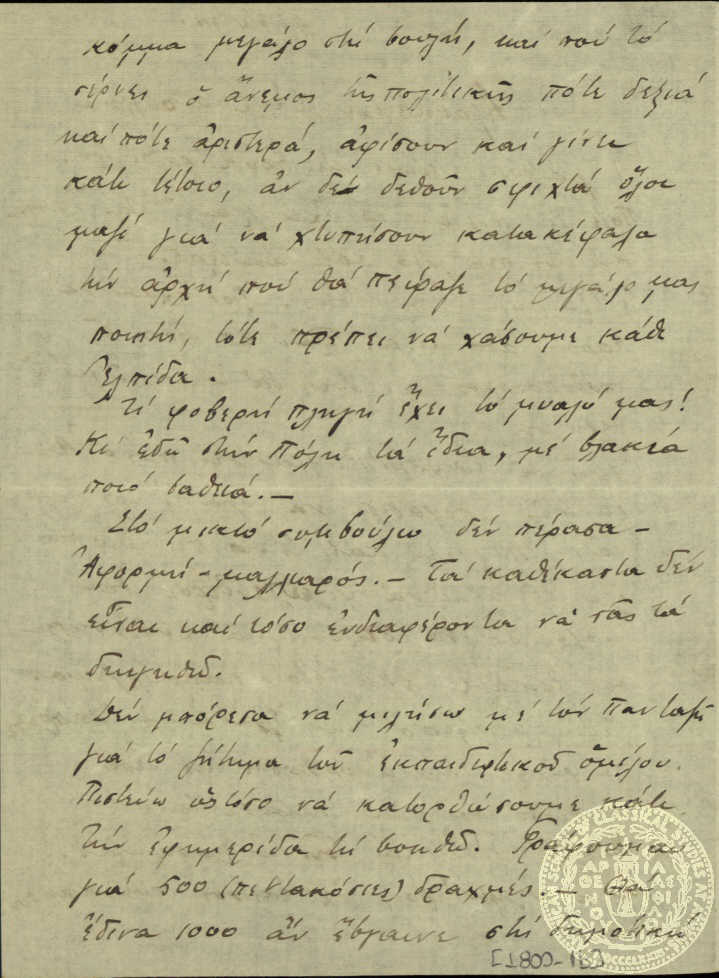 κόμμα μεγάλο στή βουλή, καί πού τό
σέρνει ὁ ἄνεμος τῆς πολιτικῆς πότε δεξιά
καί πότε ἀριστερά, ἀφίσουν καί γίνει
κάτι τέτοιο, ἄν δέ δεθοῦν σφιχτά ὅλοι
μαζί γιά νά χτυπήσουν κατακέφαλα
τήν ἀρχή πού θά πείραζε τό μεγάλο μας
ποιητή, τότε πρέπει νά χάσουμε κάθε
ἐλπίδα.
Τί φοβερή πληγή ἔχει τό μυαλό μας!
Κι ἐδῶ στήν Πόλη τά ἴδια, μέ βλακεία
ποιό βαθειά. —
Στό μικτό συμβούλιο δέν πέρασα —
Ἀφορμή - μαλλιαρός. — Τά καθέκαστα δέν
εἶναι καί τόσο ἐνδιαφέροντα νά σᾶς τά
διηγηθῶ.
Δέν μπόρεσα νά μιλήσω μέ τόν Πανταζῆ
γιά τό ζήτημα τοῦ ἐκπαιδευτικοῦ ὁμίλου.
Πιστεύω ὡστόσο νά κατορθώσουμε κάτι
Τήν ἐφημερίδα τή βοηθῶ. Γράφουμαι
γιά 500 (πεντακόσιες) δραχμές. — Θά
ἔδινα 1000 ἄν ἔβγαινε στή δημοτική
CLASSICAL STUDIES AT